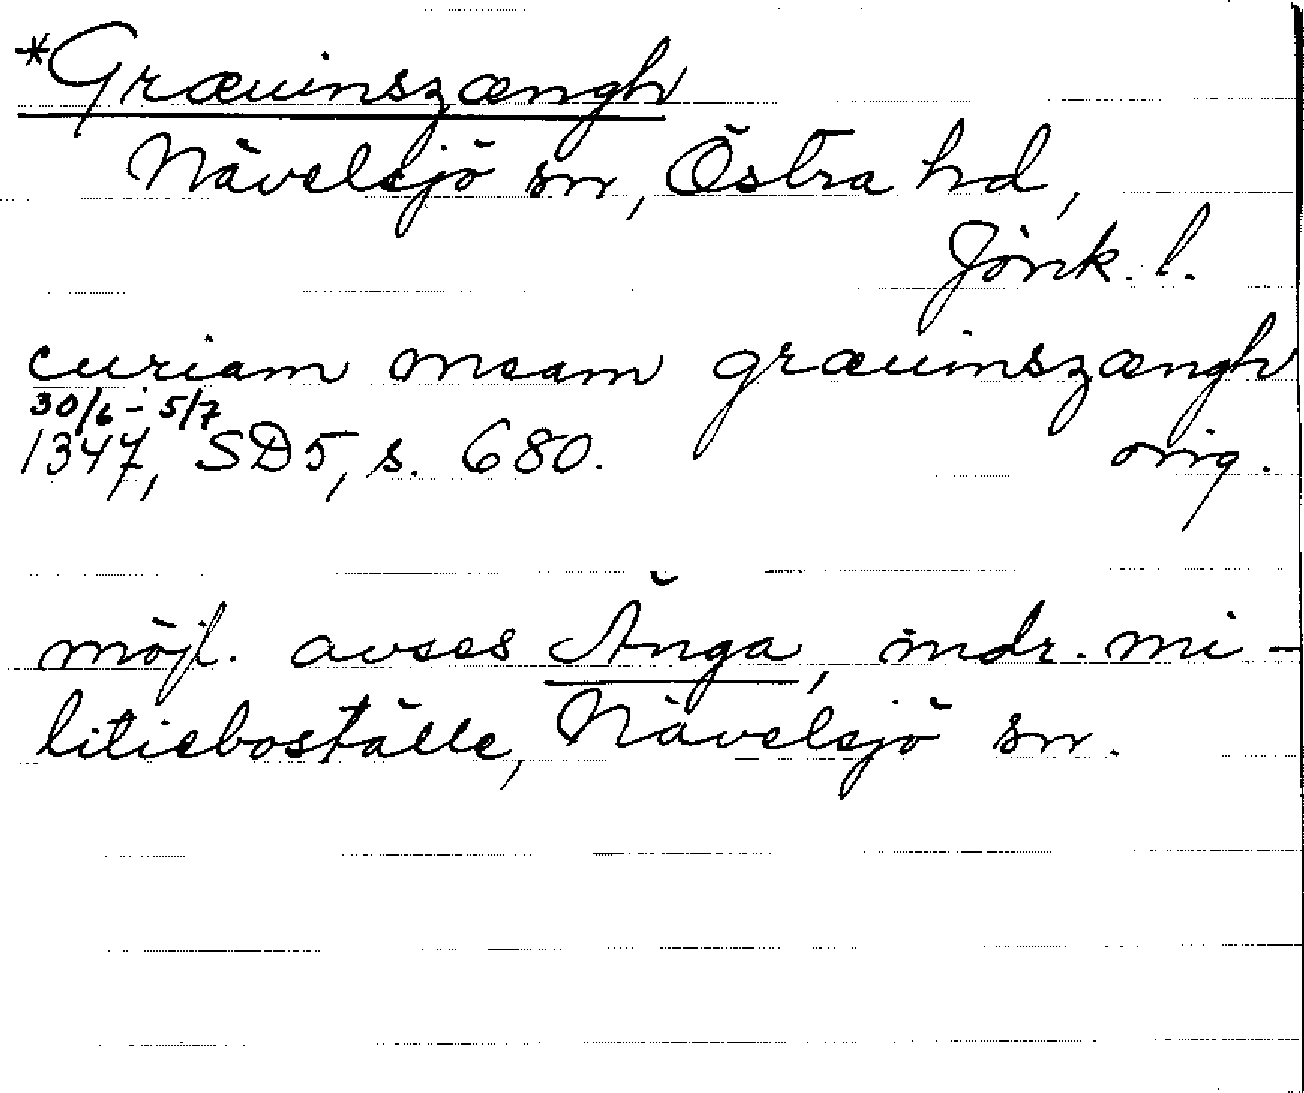 *Græuinszængh
Nävelsjö sn, Östra hd,
Jönk. l.
curiam meam græuinszængh
30/6 - 5/7
1347, SD5, s. 680. orig.
möjl. avses Änga, indr. mi-
litieboställe, Nävelsjö sn.